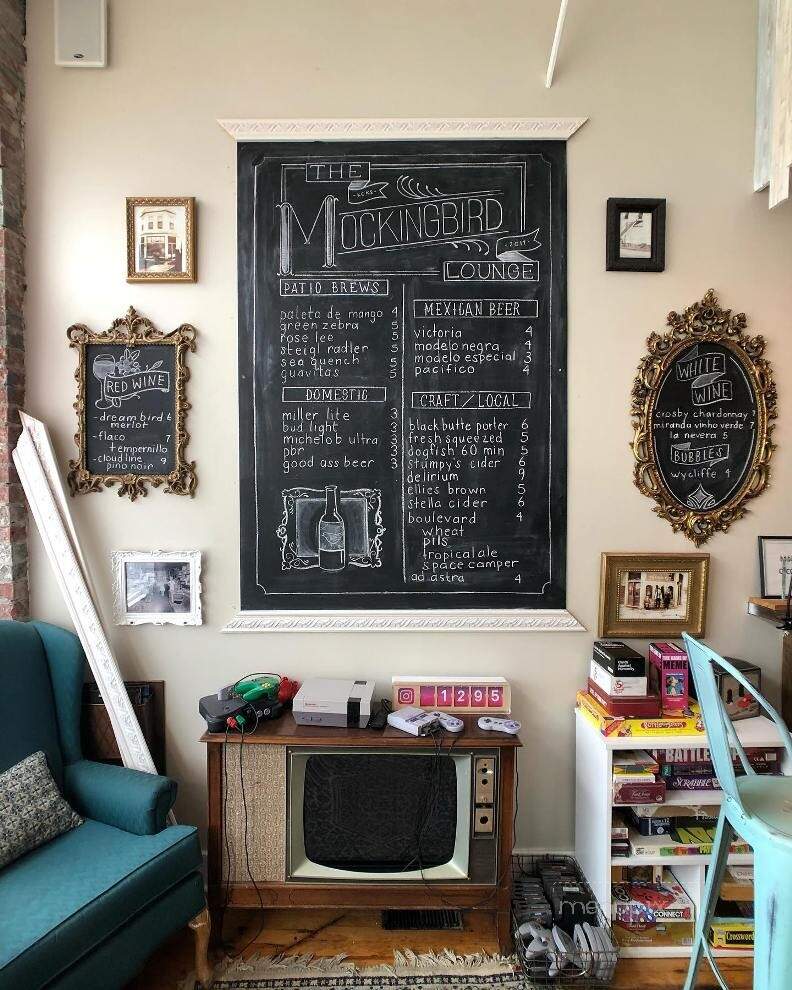 THE
ECKS
MOCKINGBIRD
2017
LOUNGE
PATIO BREWS
paleta de mango 4
green zebra 5
rose lee 5
steigl radler 5
sea quench 5
guavitas 5
DOMESTIC
miller lite 3
bud light 3
michelob ultra 3
pbr 3
good ass beer 3
MEXICAN BEER
victoria 4
modelo negra 4
modelo especial 3
pacifico 4
CRAFT/LOCAL
black butte porter 6
fresh squeezed 5
dogfish 60 min 5
stumpy's cider 6
delirium 9
ellies brown 5
stella cider 6
boulevard 4
wheat
pils
tropical ale
space camper
ad astra 4
RED WINE
-dream bird 6
merlot
-flaco 7
tempernillo
-cloudline 9
pino noir
WHITE
WINE
crosby chardonnay 7
miranda vinho verde 7
la nevera 5
BUBBLES
wycliffe 4
1295
MEME
BATTLE
SCRABBLE
CONNECT
Crossword